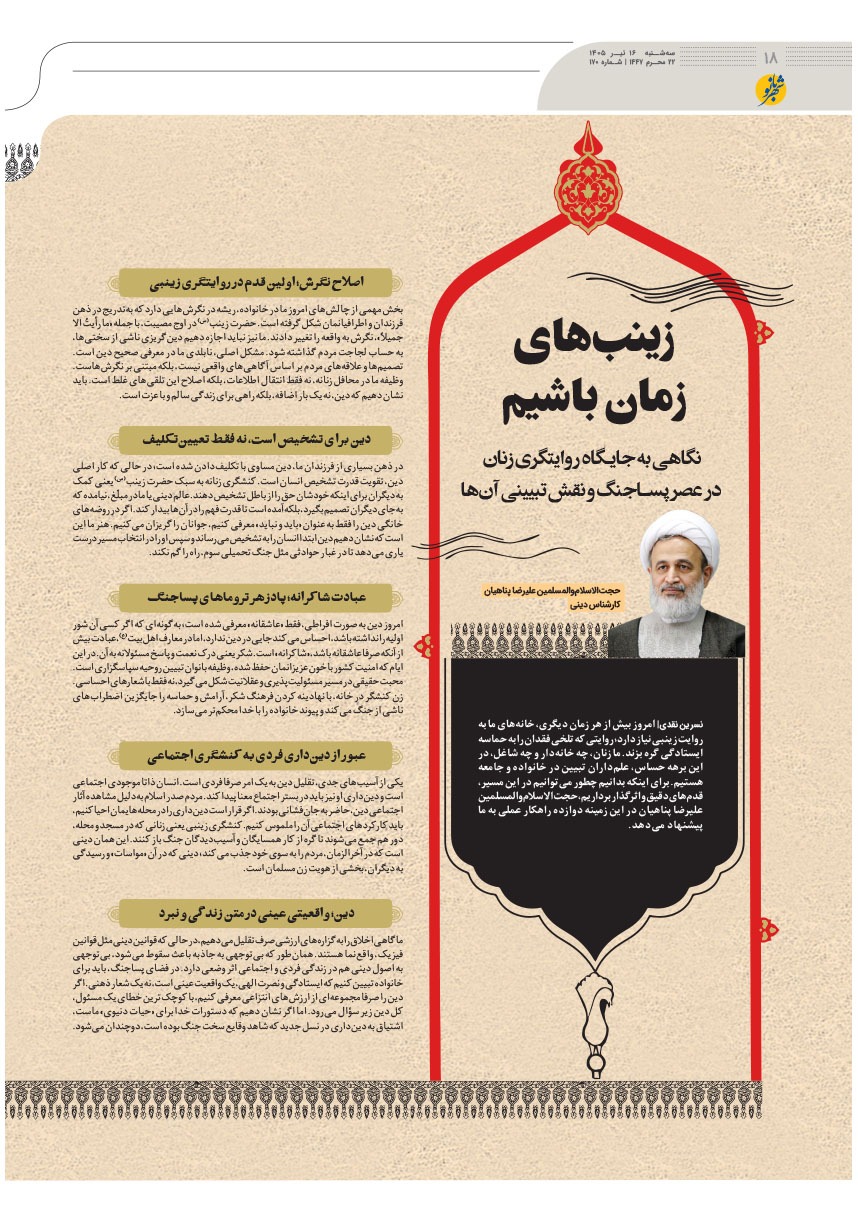 ۱۸
سه‌شنبه ۱۶ تیر ۱۴۰۵
۲۲ محرم ۱۴۴۷ | شماره ۱۷۰
شهربانو
زینب‌های
زمان باشیم
نگاهی به جایگاه روایتگری زنان
در عصر پساجنگ و نقش تبیینی آن‌ها
حجت‌الاسلام‌والمسلمین علیرضا پناهیان
کارشناس دینی
نسرین نقدی| امروز بیش از هر زمان دیگری، خانه‌های ما به
روایت زینبی نیاز دارد؛ روایتی که تلخی فقدان را به حماسه
ایستادگی گره بزند. ما زنان، چه خانه‌دار و چه شاغل، در
این برهه حساس، علم‌داران تبیین در خانواده و جامعه
هستیم. برای اینکه بدانیم چطور می‌توانیم در این مسیر،
قدم‌های دقیق و اثرگذار برداریم، حجت‌الاسلام‌والمسلمین
علیرضا پناهیان در این زمینه دوازده راهکار عملی به ما
پیشنهاد می‌دهد.
اصلاح نگرش؛ اولین قدم در روایتگری زینبی
بخش مهمی از چالش‌های امروز ما در خانواده، ریشه در نگرش‌هایی دارد که به‌تدریج در ذهن
فرزندان و اطرافیانمان شکل گرفته است. حضرت زینب(س) در اوج مصیبت، با جمله «ما رأیتُ الا
جمیلاً»، نگرش به واقعه را تغییر دادند. ما نیز نباید اجازه دهیم دین‌گریزی ناشی از سختی‌ها،
به حساب لجاجت مردم گذاشته شود. مشکل اصلی، نابلدی ما در معرفی صحیح دین است.
تصمیم‌ها و علاقه‌های مردم بر اساس آگاهی‌های واقعی نیست، بلکه مبتنی بر نگرش‌هاست.
وظیفه ما در محافل زنانه، نه فقط انتقال اطلاعات، بلکه اصلاح این تلقی‌های غلط است. باید
نشان دهیم که دین، نه یک بار اضافه، بلکه راهی برای زندگی سالم و با عزت است.
دین برای تشخیص است، نه فقط تعیین تکلیف
در ذهن بسیاری از فرزندان ما، دین مساوی با تکلیف‌دادن شده است؛ در حالی که کار اصلی
دین، تقویت قدرت تشخیص انسان است. کنشگری زنانه به سبک حضرت زینب(س) یعنی کمک
به دیگران برای اینکه خودشان حق را از باطل تشخیص دهند. عالم دینی یا مادر مبلغ، نیامده که
به جای دیگران تصمیم بگیرد، بلکه آمده است تا قدرت فهم را در آن‌ها بیدار کند. اگر در روضه‌های
خانگی دین را فقط به عنوان «باید و نباید» معرفی کنیم، جوانان را گریزان می‌کنیم. هنر ما این
است که نشان دهیم دین ابتدا انسان را به تشخیص می‌رساند و سپس او را در انتخاب مسیر درست
یاری می‌دهد تا در غبار حوادثی مثل جنگ تحمیلی سوم، راه را گم نکند.
عبادت شاکرانه؛ پادزهر تروماهای پساجنگ
امروز دین به صورت افراطی، فقط «عاشقانه» معرفی شده است، به گونه‌ای که اگر کسی آن شور
اولیه را نداشته باشد، احساس می‌کند جایی در دین ندارد، اما در معارف اهل‌بیت(ع)، عبادت بیش
از آنکه صرفا عاشقانه باشد، «شاکرانه» است. شکر یعنی درک نعمت و پاسخ مسئولانه به آن. در این
ایام که امنیت کشور با خون عزیزانمان حفظ شده، وظیفه بانوان تبیین روحیه سپاسگزاری است.
محبت حقیقی در مسیر مسئولیت‌پذیری و عقلانیت شکل می‌گیرد، نه فقط با شعارهای احساسی.
زن کنشگر در خانه، با نهادینه کردن فرهنگ شکر، آرامش و حماسه را جایگزین اضطراب‌های
ناشی از جنگ می‌کند و پیوند خانواده را با خدا محکم‌تر می‌سازد.
عبور از دین‌داری فردی به کنشگری اجتماعی
یکی از آسیب‌های جدی، تقلیل دین به یک امر صرفا فردی است. انسان ذاتا موجودی اجتماعی
است و دین‌داری او نیز باید در بستر اجتماع معنا پیدا کند. مردم صدر اسلام به دلیل مشاهده آثار
اجتماعی دین، حاضر به جان‌فشانی بودند. اگر قرار است دین‌داری را در محله‌هایمان احیا کنیم،
باید کارکردهای اجتماعی آن را ملموس کنیم. کنشگری زینبی یعنی زنانی که در مسجد و محله،
دور هم جمع می‌شوند تا گره از کار همسایگان و آسیب‌دیدگان جنگ باز کنند. این همان دینی
است که در آخرالزمان، مردم را به سوی خود جذب می‌کند؛ دینی که در آن «مواسات» و رسیدگی
به دیگران، بخشی از هویت زن مسلمان است.
دین؛ واقعیتی عینی در متن زندگی و نبرد
ما گاهی اخلاق را به گزاره‌های ارزشی صرف تقلیل می‌دهیم، در حالی که قوانین دینی مثل قوانین
فیزیک، واقع‌نما هستند. همان‌طور که بی‌توجهی به جاذبه باعث سقوط می‌شود، بی‌توجهی
به اصول دینی هم در زندگی فردی و اجتماعی اثر وضعی دارد. در فضای پساجنگ، باید برای
خانواده تبیین کنیم که ایستادگی و نصرت الهی، یک واقعیت عینی است، نه یک شعار ذهنی. اگر
دین را صرفا مجموعه‌ای از ارزش‌های انتزاعی معرفی کنیم، با کوچک‌ترین خطای یک مسئول،
کل دین زیر سؤال می‌رود. اما اگر نشان دهیم که دستورات خدا برای «حیات دنیوی» ماست،
اشتیاق به دین‌داری در نسل جدید که شاهد وقایع سخت جنگ بوده است، دوچندان می‌شود.